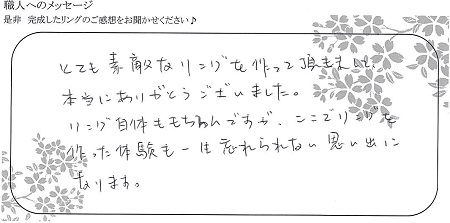 職人へのメッセージ
是非 完成したリングのご感想をお聞かせください♪
とても素敵なリングを作って頂きまして、
本当にありがとうございました。
リング自体ももちろんですが、ここでリングを
作った体験も一生忘れられない思い出に
なります。